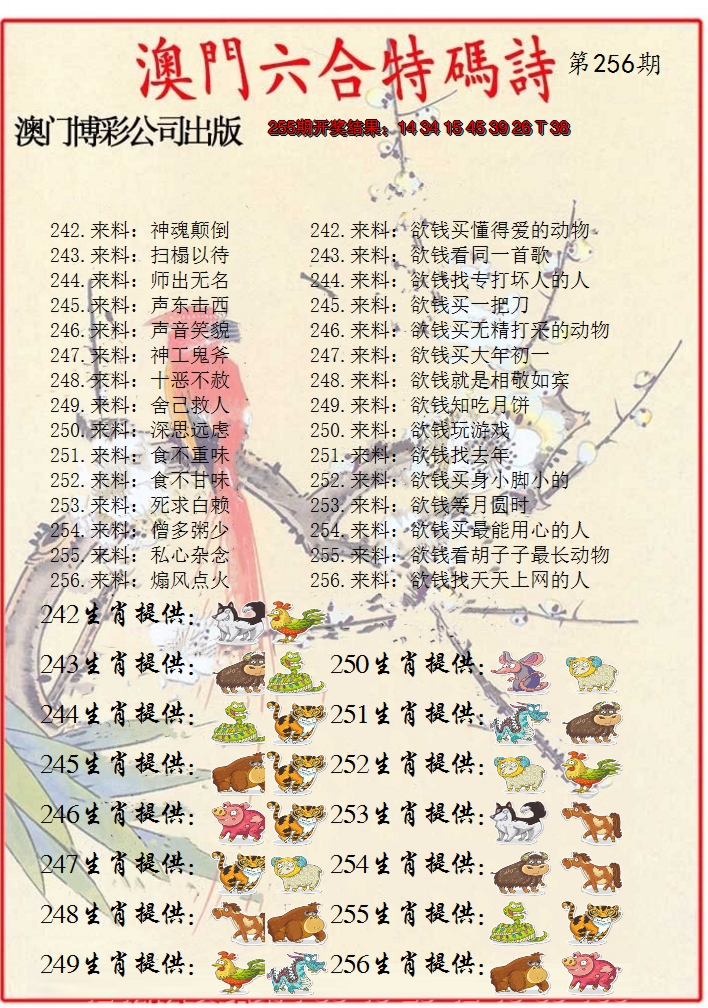 澳門六合特碼詩 第256期
澳门博彩公司出版 255期开奖结果：14 34 15 45 39 26 T 36
242.来料：神魂颠倒 242.来料：欲钱买懂得爱的动物
243.来料：扫榻以待 243.来料：欲钱看同一首歌
244.来料：师出无名 244.来料：欲钱找专打坏人的人
245.来料：声东击西 245.来料：欲钱买一把刀
246.来料：声音笑貌 246.来料：欲钱买无精打采的动物
247.来料：神工鬼斧 247.来料：欲钱买大年初一
248.来料：十恶不赦 248.来料：欲钱就是相敬如宾
249.来料：舍己救人 249.来料：欲钱知吃月饼
250.来料：深思远虑 250.来料：欲钱玩游戏
251.来料：食不重味 251.来料：欲钱找去年
252.来料：食不甘味 252.来料：欲钱买身小脚小的
253.来料：死求白赖 253.来料：欲钱等月圆时
254.来料：僧多粥少 254.来料：欲钱买最能用心的人
255.来料：私心杂念 255.来料：欲钱看胡子子最长动物
256.来料：煽风点火 256.来料：欲钱找天天上网的人
242生肖提供：
243生肖提供： 250生肖提供：
244生肖提供： 251生肖提供：
245生肖提供： 252生肖提供：
246生肖提供： 253生肖提供：
247生肖提供： 254生肖提供：
248生肖提供： 255生肖提供：
249生肖提供： 256生肖提供：